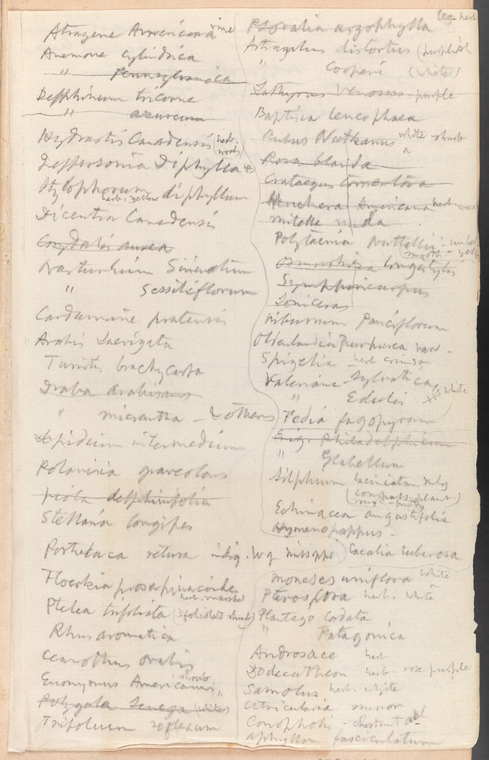 Atragene Americana vine
Anemone cylindrica
" Pennsylvanica
Delphinium tricorne
" azureum
Hydrastis Canadensis herb. woods
Jeffersonia Diphylla
Stylophorum diphyllum
herb. yellow
Dicentra Canadensis
Corydalis aurea
Nasturtium Sinuatum
" Sessiliflorum
Cardamine pratensis
Arabis Laevigata
Turritis brachycarpa
Draba Arabisans
" micrantha - & others
Lepidium intermedium
Polanisia graveolens
Viola delphinifolia
Stellaria longipes
Portulaca retusa indig. W of Missippi
Floerkia proserpinacoides
Ptelea trifoliata (3 foliolate shrub)
Rhus aromatica
Ceanothus ovalis
Euonymus Americanus shrub
Polygala Senega (white)
Trifolium reflexum
leg. herb
Psoralia argophylla
Astragalus distortus (purplish
" Cooperi (white)
Lathyrus venosus purple
Baptisia leucophaea
Rubus Nutkanus white shrub
Rosa blanda
Crataegus tomentosa
Heuchera Americana herb
mitella nuda
Polytaenia Nuttallii
Osmorhiza longistylis
Symphoricarpus
Lonicera
Viburnum Pauciflorum
Oldenlandia purpurea
Spigelia herb crimson
Valeriana Sylvatica
" Edulis white
Fedia fagopyrum
Erig. Philadelphicum
" Glabellum
Silphium laciniatum
(compass plant)
Echinacea angustifolia
Hymenopappus
Cacalia tuberosa
moneses uniflora white
Pterospora herb. white
Plantago cordata
" Patagonica
Androsace herb
Dodecatheon herb. rose purple
Samolus herb. white
Utricularia minor
Conopholis - chestnut
aphyllon fasciculatum